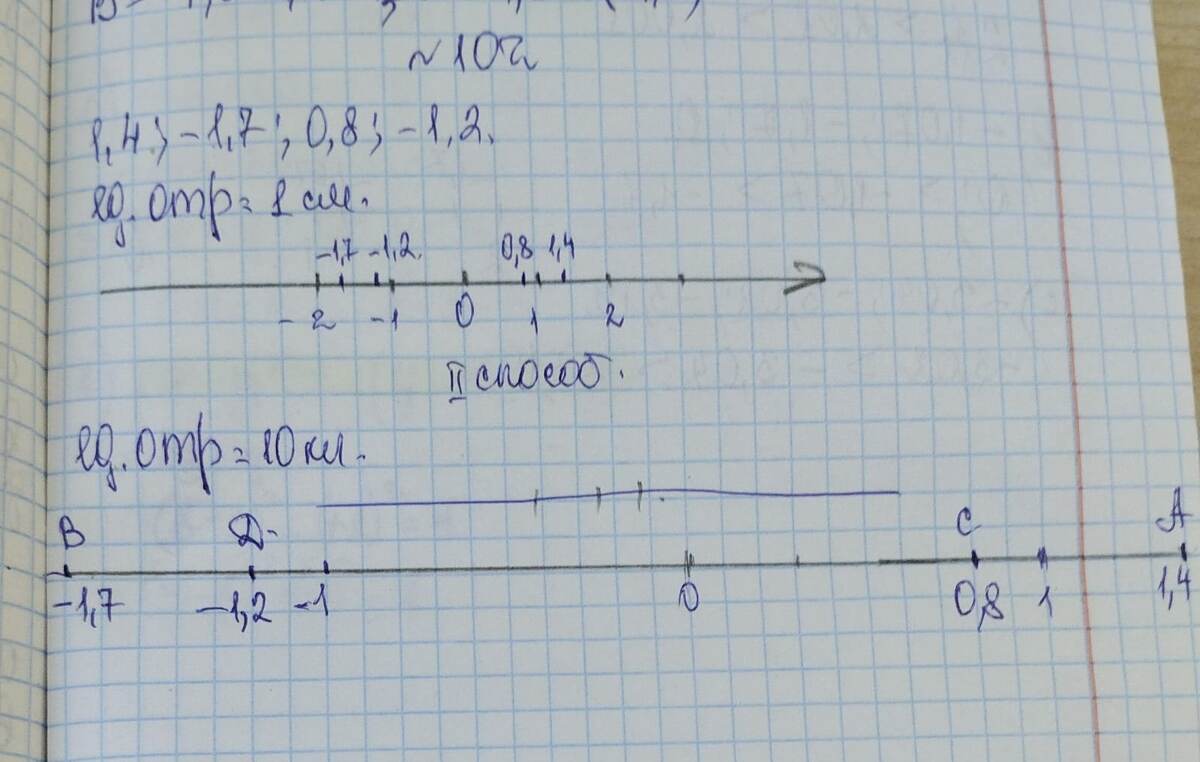 ~10г
1,4; -1,7; 0,8; -1,2.
ед. отр = 1 см.
-1,7 -1,2 0,8 1,4
-2 -1 0 1 2
II способ.
ед. отр = 10 кл.
В Д С А
-1,7 -1,2 -1 0 0,8 1 1,4